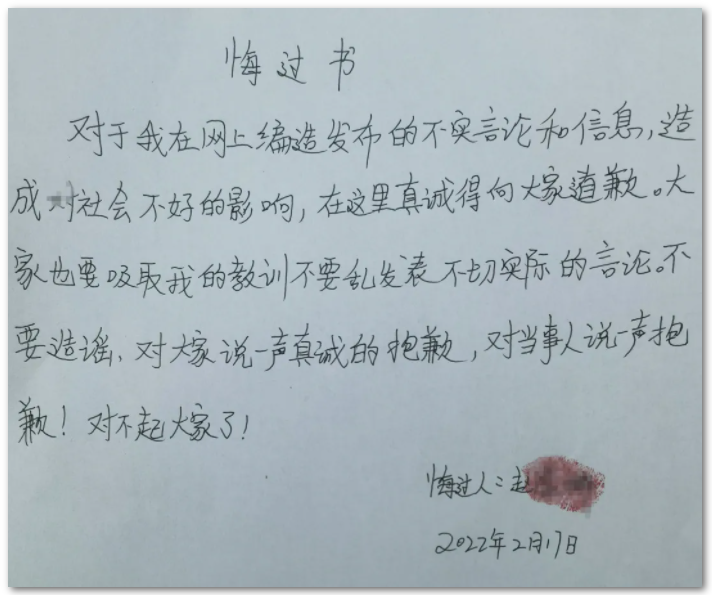 悔过书
对于我在网上编造发布的不实言论和信息,造
成对社会不好的影响,在这里真诚得向大家道歉。大
家也要吸取我的教训不要乱发表不切实际的言论。不
要造谣、对大家说一声真诚的抱歉,对当事人说一声抱
歉!对不起大家了!
悔过人:赵
2022年2月17日